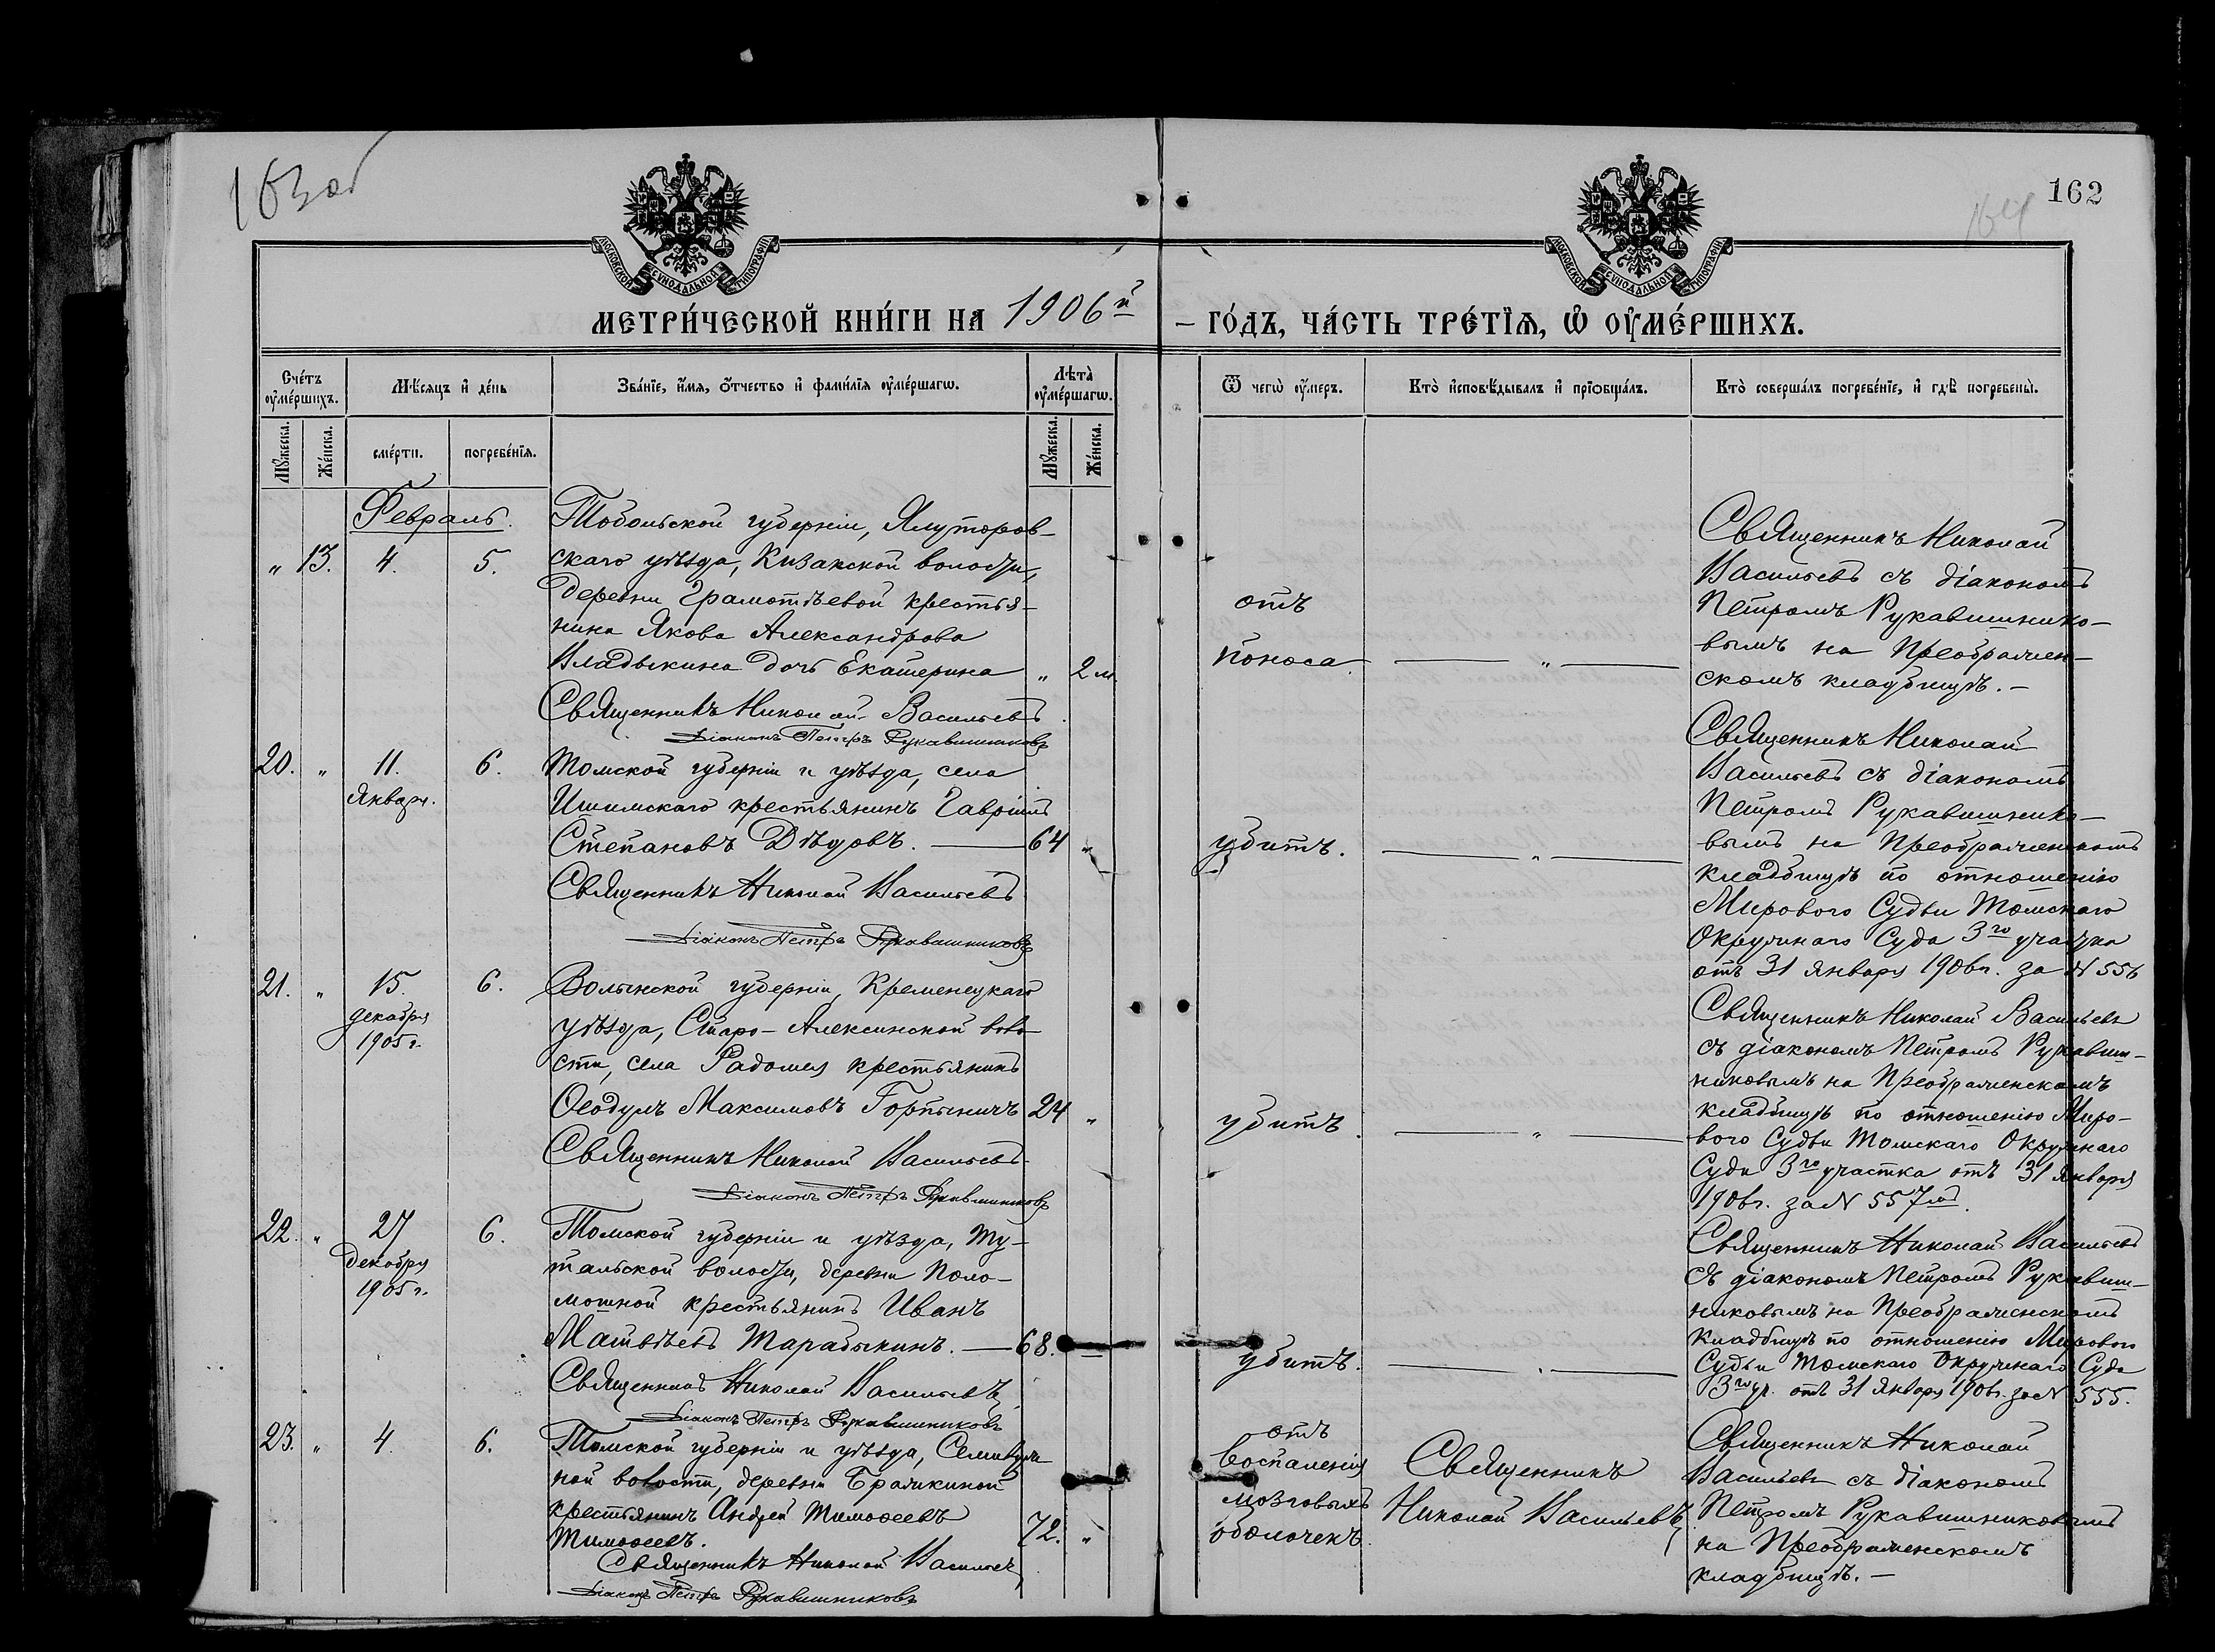 163об
162
164
МОСКОВСКОЙ СѴНОДАЛЬНОЙ ТИПОГРАФІИ
МОСКОВСКОЙ СѴНОДАЛЬНОЙ ТИПОГРАФІИ
МЕТРИ́ЧЕСКОЙ КНИ́ГИ НА 1906й
– ГО́ДЪ, ЧА́СТЬ ТРЕ́ТЇѦ, Ѡ҆ ОУ҆МЕ́РШИХЪ.
Сче́тъ оу҆ме́ршихъ.
Мѣ́сяцъ и҆ де́нь
Зва́нїе, и҆́мя, ѻ҆́тчество и҆ фами́лїя оу҆ме́ршагѡ.
Лѣта̀ оу҆ме́ршагѡ.
Ѿ чегѡ̀ оу҆́меръ.
Кто̀ и҆сповѣ́дывалъ и҆ прїѻбща́лъ.
Кто̀ соверша́лъ погребе́нїе, и҆ гдѣ̀ погребены̀.
Мꙋ́жеска.
Же́нска.
сме́рти.
погребе́нїѧ.
Мꙋ́жеска.
Же́нска.
Февраль.
" 13. 4. 5.
Тобольской губерніи, Ялуторов-
скаго уѣзда, Кизакской волости,
деревни Грамотѣевой крестья-
нина Якова Александрова
Владыкина дочь Екатерина " 2 м.
Священникъ Николай Васильевъ
Діаконъ Петръ Рукавишниковъ
отъ
поноса.
"
Священникъ Николай
Васильевъ съ діакономъ
Петромъ Рукавишнико-
вымъ на Преображен-
скомъ кладбищѣ.–
20. " 11. Января. 6.
Томской губерніи и уѣзда, села
Ишимскаго крестьянинъ Гавріилъ
Степановъ Дѣдовъ. 64 "
Священникъ Николай Васильевъ
Діаконъ Петръ Рукавишниковъ
убитъ.
"
Священникъ Николай
Васильевъ съ діакономъ
Петромъ Рукавишнико-
вымъ на Преображенскомъ
кладбищѣ по отношенію
Мирового Судьи Томскаго
Окружнаго Суда 3го участка
отъ 31 января 1906г. за N 556
21. " 15. декабря 1905 г. 6.
Волынской губерніи, Кременецкаго
уѣзда, Старо-Алексинской воло-
сти, села Радошея крестьянинъ
Ѳеодулъ Максимовъ Горпыничъ 24 "
Священникъ Николай Васильевъ
Діаконъ Петръ Рукавишниковъ
убитъ.
"
Священникъ Николай Васильевъ
съ діакономъ Петромъ Рукавиш-
никовымъ на Преображенскомъ
кладбищѣ по отношенію Миро-
вого Судьи Томскаго Окружнаго
Суда 3го участка отъ 31 января
1906г. за N 557мъ.
22. " 27 декабря 1905 г. 6.
Томской губерніи и уѣзда, Ту-
тальской волости, деревни Поло-
мошной крестьянинъ Иванъ
Матвѣевъ Тарабыкинъ. 68.
Священникъ Николай Васильевъ
Діаконъ Петръ Рукавишниковъ
убитъ.
"
Священникъ Николай Васильевъ
съ діакономъ Петромъ Рукавиш-
никовымъ на Преображенскомъ
кладбищѣ по отношенію Мирового
Судьи Томскаго Окружнаго Суда
3го уч. отъ 31 января 1906г. за N 555.
23. " 4. 6.
Томской губерніи и уѣзда, Семилуж-
ной волости, деревни Бражкиной
крестьянинъ Андрей Тимоѳеевъ
Тимоѳеевъ. 72. "
Священникъ Николай Васильевъ
Діаконъ Петръ Рукавишниковъ
отъ
воспаленія
мозговыхъ
оболочекъ.
Священникъ
Николай Васильевъ
Священникъ Николай
Васильевъ съ діакономъ
Петромъ Рукавишниковымъ
на Преображенскомъ
кладбищѣ.–